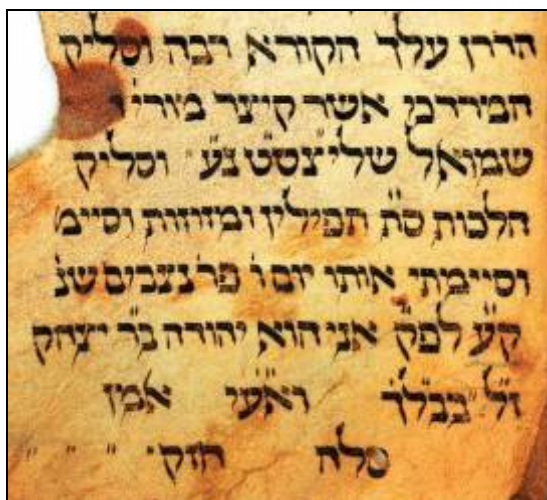 הדרן עלך הקורא רבה וסליק
המרדכי אשר קיצר מורי
שמואל שליצסט נע״ וסליק
הלכות ס״ת תפילין ומזוזות וסיימ
וסיימתי אותו יום ו׳ פר׳ נצבים שנ׳
ק״ע לפ״ק אני הוא יהודה ב״ר יצחק
ז״ל אמן
סלה חזק